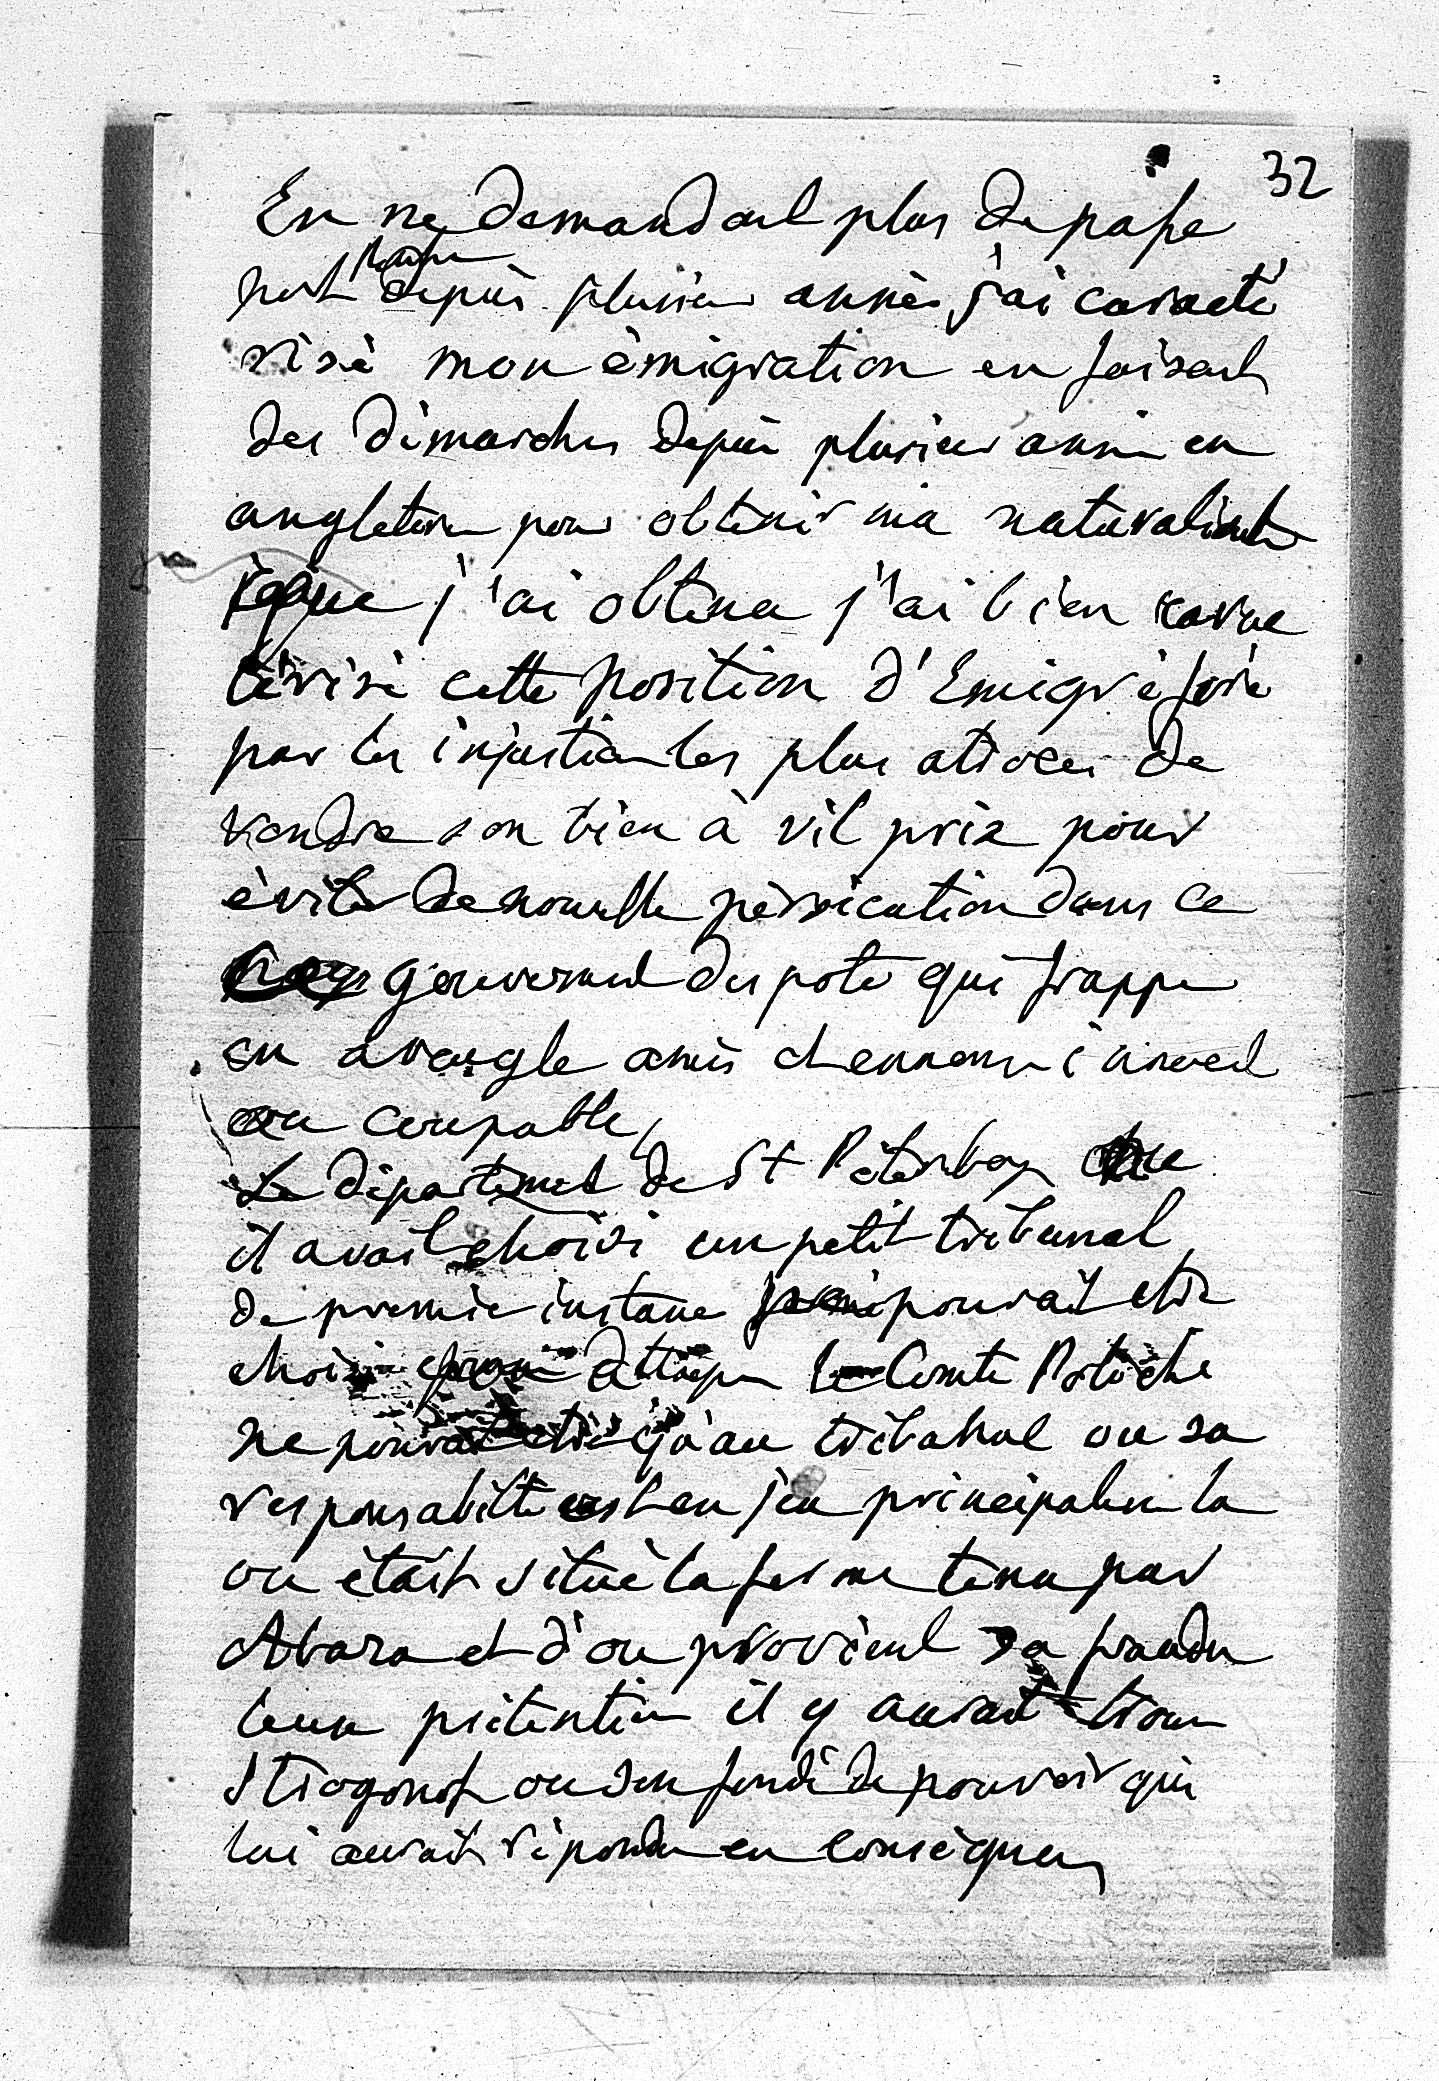 32
En ne demandant plus de passe
port depuis plusieurs années j'ai caracté
risé mon émigration en faisant
des démarches depuis plusieurs année en
angleterre pour obtenir ma
que j'ai obtenu j'ai bien carac
térisé cette position d'Emigré forcé
par les injustices les plus atroces de
vendre son bien à vil prix pour
éviter de nouvelle pérsécution dans ce
gouvernement despote qui frappe
en aveugle amis et ennemi inocent
ou coupable,
Le département de St Petersbourg
il avait choisi un petit tribunal
de premie instance pouvait etre
choisi attaquer le Comte Potocki
ne pouvait etre qu'au tribunal ou sa
responsabilite est en jeu principalem la
ou était située la ferme tenu par
Abaza et d'ou provient sa fraudu
leuse prétention il y aurait trouve
Stragonof ou son fondé de pouvoir qui
lui aurait répondu en conséquen